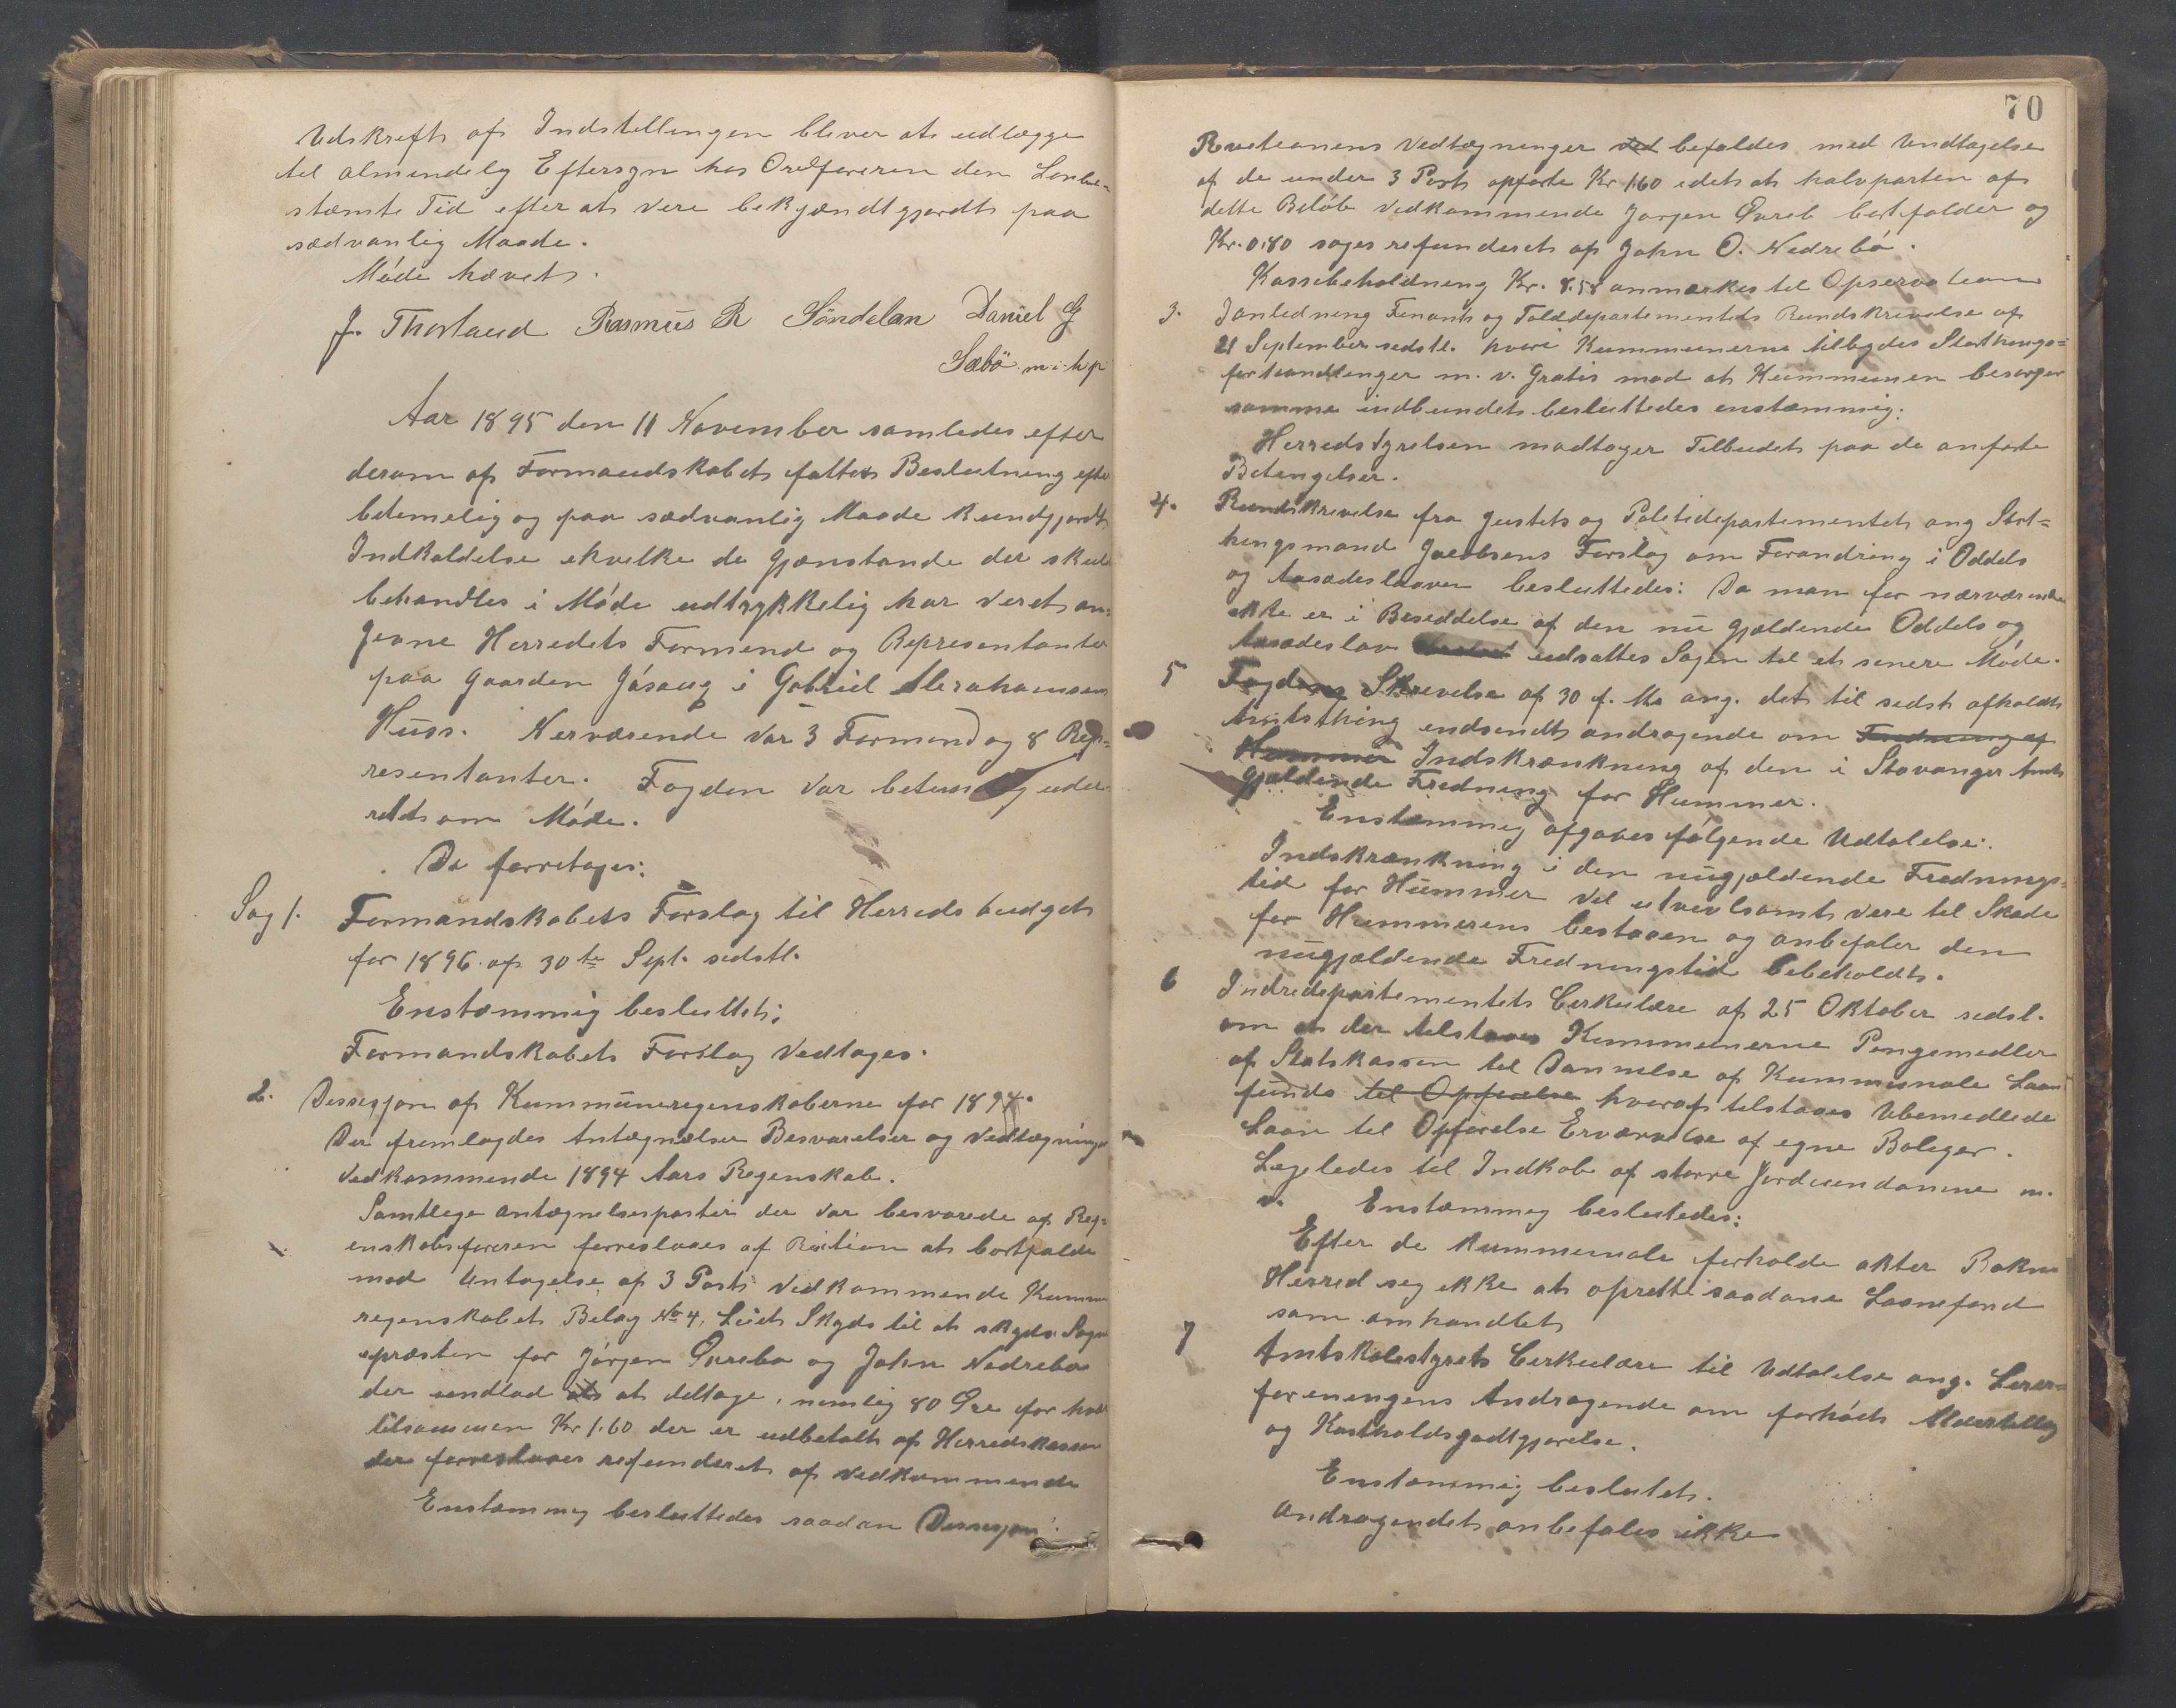 Udskrift af Indstillingen bliver at udlægge
til almindelig Eftersyn hos Ordføreren den Lovbe-
stæmte Tid efter at vere bekjændtgjordt paa
sædvanlig Maade.
Møde hævet.
J. Thorland Rasmus R Søndelan Daniel G
Sæbö m. i. h. p
Aar 1895 den 11 November samledes efter
derom af Formandskabet fattet Beslutning efter
betimelig og paa sædvanlig Maade kundgjordt
Indkaldelse i hvilke de Gjænstande der skulde
behandles i Møde udtrykkelig har veret an-
givne Herredets Formend og Representanter
paa Gaarden Jøsang i Gabriel Abrahamsens
Huss. Nerværende var 3 Formend og 8 Rep-
resentanter. Fogden var betimelig under-
rettet om Møde.
Da forretoges:
Sag 1. Formandskabets Forslag til Herredsbudget
for 1896 af 30te Sept. sidstl.
Enstæmmig besluttet;
Formandskabets Forslag vedtages.
2. Dessisjon af Kummuneregenskaberne for 1894.
Der fremlagdes Antægnelser Besvarelser og Vedtægninger
vedkommende 1894 Aars Regenskab.
Samtlege antægnelsesposter der var besvarede af Reg-
enskabsføreren forreslaaes af Revition at bortfalde
med Untagelse af 3 Post vedkommende Kummune
regenskabet Belag No 4, Leiet Skyds til at skyds Sogne
epræsten for Jørgen Øvrebø og John Nedrebø
der undlod at at deltage, nemlig 80 Øre for hver
tilsammen Kr 1.60 der er udbetalt af Herredskassen
der forreslaaes refunderet af vedkommende
Enstæmmig besluttedes saadan Dessisjon:
70
Revitionens Vedtægninger ved befaldes med Undtagelse
af de under 3 Post opførte Kr 1.60 idet at halvparten af
dette Beløb vedkommende Jørgen Øvreb bortfalder og
Kr. 0.80 søges refunderet af John O. Nedrebø.
Kassebeholdning Kr. 8.58 anmærkes til Opservation
3. I anledning Finants og Tolddepartementets Rundskrivelse af
21 September sidstl. hvori Kummunerne tilbydes Storthings-
forhandlinger m. v. Gratis mod at Kummunen besørger
samme indbundet besluttedes enstæmmig:
Herredstyrelsen modtager Tilbudet paa de anførte
Betengelser.
4. Rundskrivelse fra Justits og Politidepartementet ang Stort-
hingsmand Jacobsens Forslag om Forandring i Oddels
og Aasædesloven besluttedes: Da man for nærværende
ikke er i Beseddelse af den nu gjældende Oddels og
Aasædeslov udsattes Sagen til et senere Møde.
5 Fogdens Skrivelse af 30 f. M. ang. det til sidst afholdt
Amtsthing indsendt andragende om Fredning af
Hummer Indskrænkning af den i Stavanger Amt
gjældende Fredning for Hummer.
Enstemmig afgaves følgende Udtalelse:
Indskrænkning i den nugjældende Frednings-
tid for Hummer vel utvivlsomt vere til Skade
for Hummerens bestaaen og anbefaler den
nugjældende Fredningstid bebeholdt.
6 Indredepartementets Cerkulære af 25 Oktober sidstl.
om at der tilstaaes Kummunerne Pengemedler
af Statskassen til Dannelse af Kummunale Laane
funds til Opførelse hveraf tilstaaes Ubemedlede
Laan til Opførelse Erværvelse af egne Boliger.
Legeledes til Indkøb af større Jordeiendomme m.
v. Enstæmmeg beslutedes:
Efter de kummunale forholde akter Bokn
Herred seg ikke at oprette saadane Laanefond
som omhandlet
7 Amtskolestyrets Cerkulære til Udtalelse ang. Lerer-
foreningens Andragende om forhøiet Alderstillæg
og Kostholdsgodtgjørelse.
Enstæmmig beslutet.
Andragendet anbefales ikke